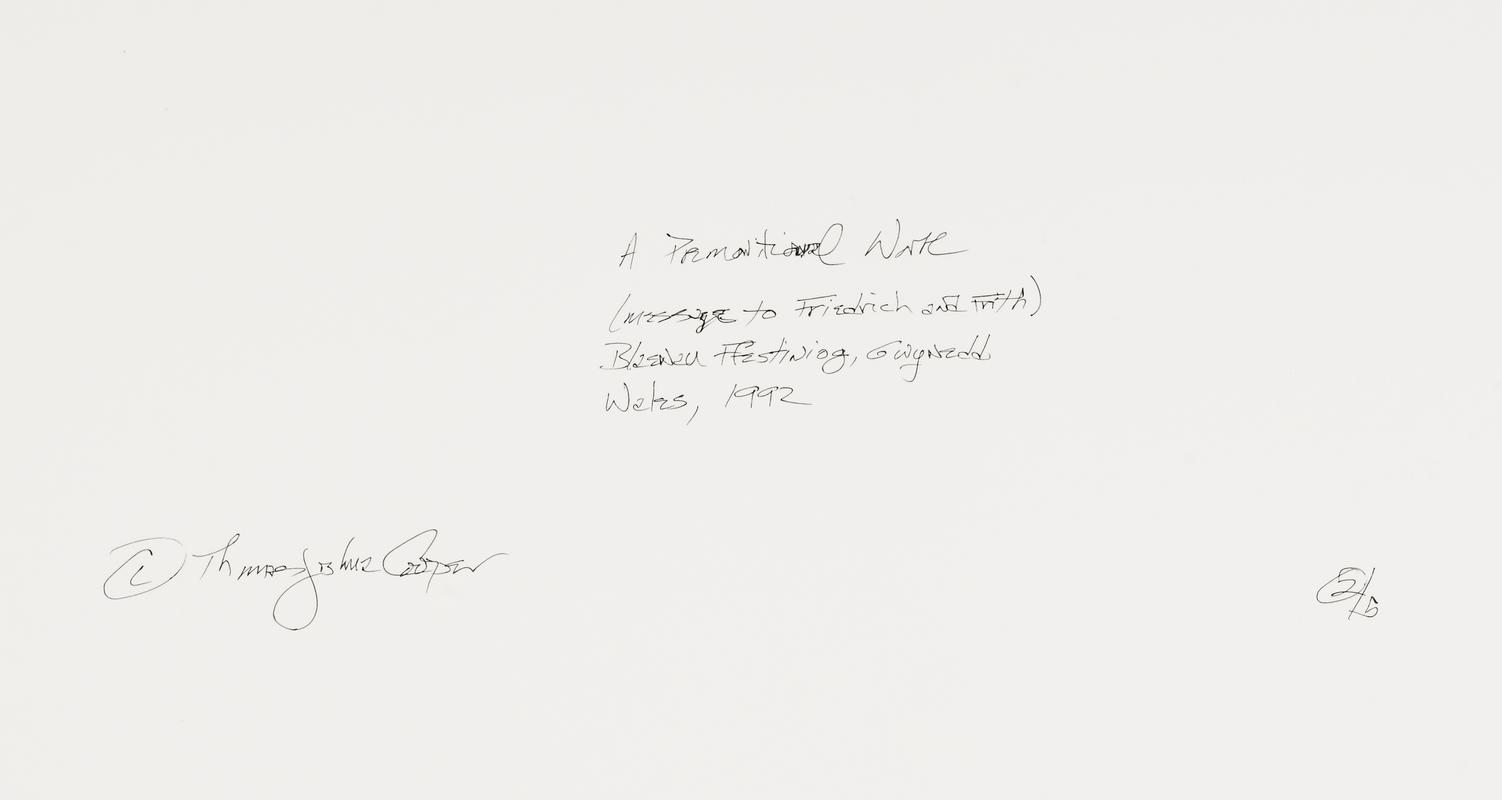 A Premonitional Work
(message to Friedrich and Frith)
Blaenau Ffestiniog, Gwynedd
Wales, 1992
© Thomas Joshua Cooper
2/5